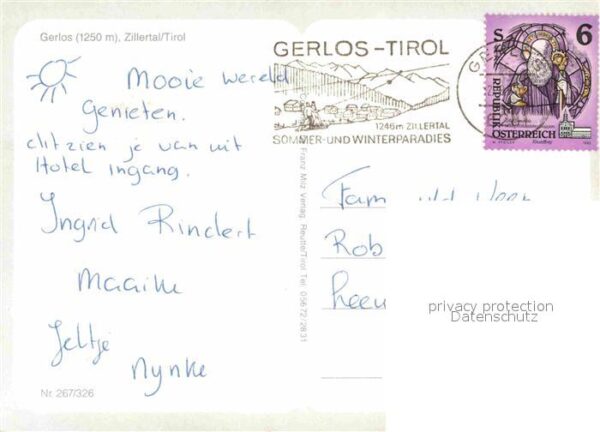 Gerlos (1250 m), Zillertal/Tirol
Mooie wereld
Genieten.
dit zien je van uit
Hotel ingang.
Ingrid Rindert
Maaike
Jeltje
Nynke
Nr. 267/326
Franz Milz Verlag, Reutte/Tirol Tel. 05672/2831
GERLOS-TIROL
1246m ZILLERTAL
SOMMER-UND WINTERPARADIES
S 6
REPUBLIK
ÖSTERREICH
Fam
Rob
Leeu
privacy protection
Datenschutz